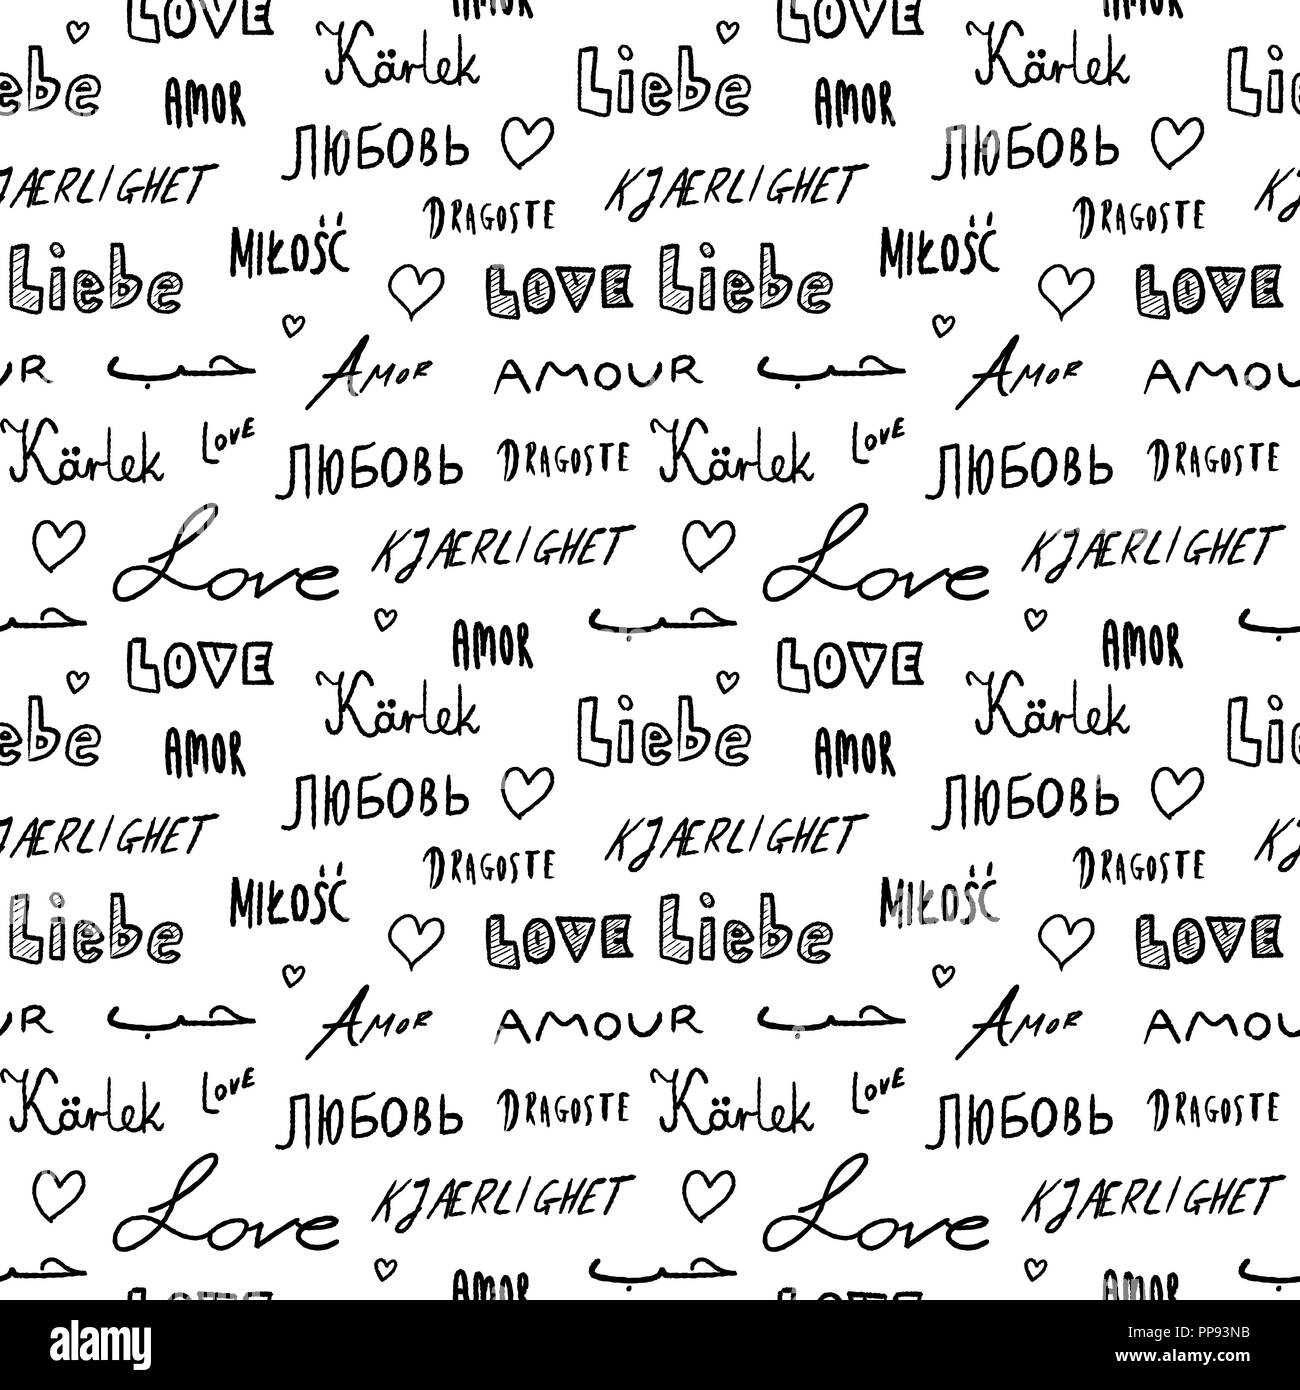 LOVE AMOR LOVE AMOR
Kärlek Kärlek
ebe Liebe Lie
AMOR AMOR
ЛЮБОВЬ ЛЮБОВЬ
JÆRLIGHET KJÆRLIGHET KJ
DRAGOSTE DRAGOSTE
MIŁOŚĆ MIŁOŚĆ
Liebe LOVE Liebe LOVE
UR حب AMOR AMOUR حب AMOR AMOU
Kärlek LOVE ЛЮБОВЬ DRAGOSTE Kärlek LOVE ЛЮБОВЬ DRAGOSTE
Love KJÆRLIGHET Love KJÆRLIGHET
حب حب حب
LOVE AMOR LOVE AMOR
Kärlek Kärlek
ebe Liebe Lie
AMOR AMOR
ЛЮБОВЬ ЛЮБОВЬ
JÆRLIGHET KJÆRLIGHET KJ
DRAGOSTE DRAGOSTE
MIŁOŚĆ MIŁOŚĆ
Liebe LOVE Liebe LOVE
UR حب AMOR AMOUR حب AMOR AMOU
Kärlek LOVE ЛЮБОВЬ DRAGOSTE Kärlek LOVE ЛЮБОВЬ DRAGOSTE
Love KJÆRLIGHET Love KJÆRLIGHET
حب حب حب
LOVE AMOR LOVE AMOR
alamy
Image ID: PP93NB
www.alamy.com